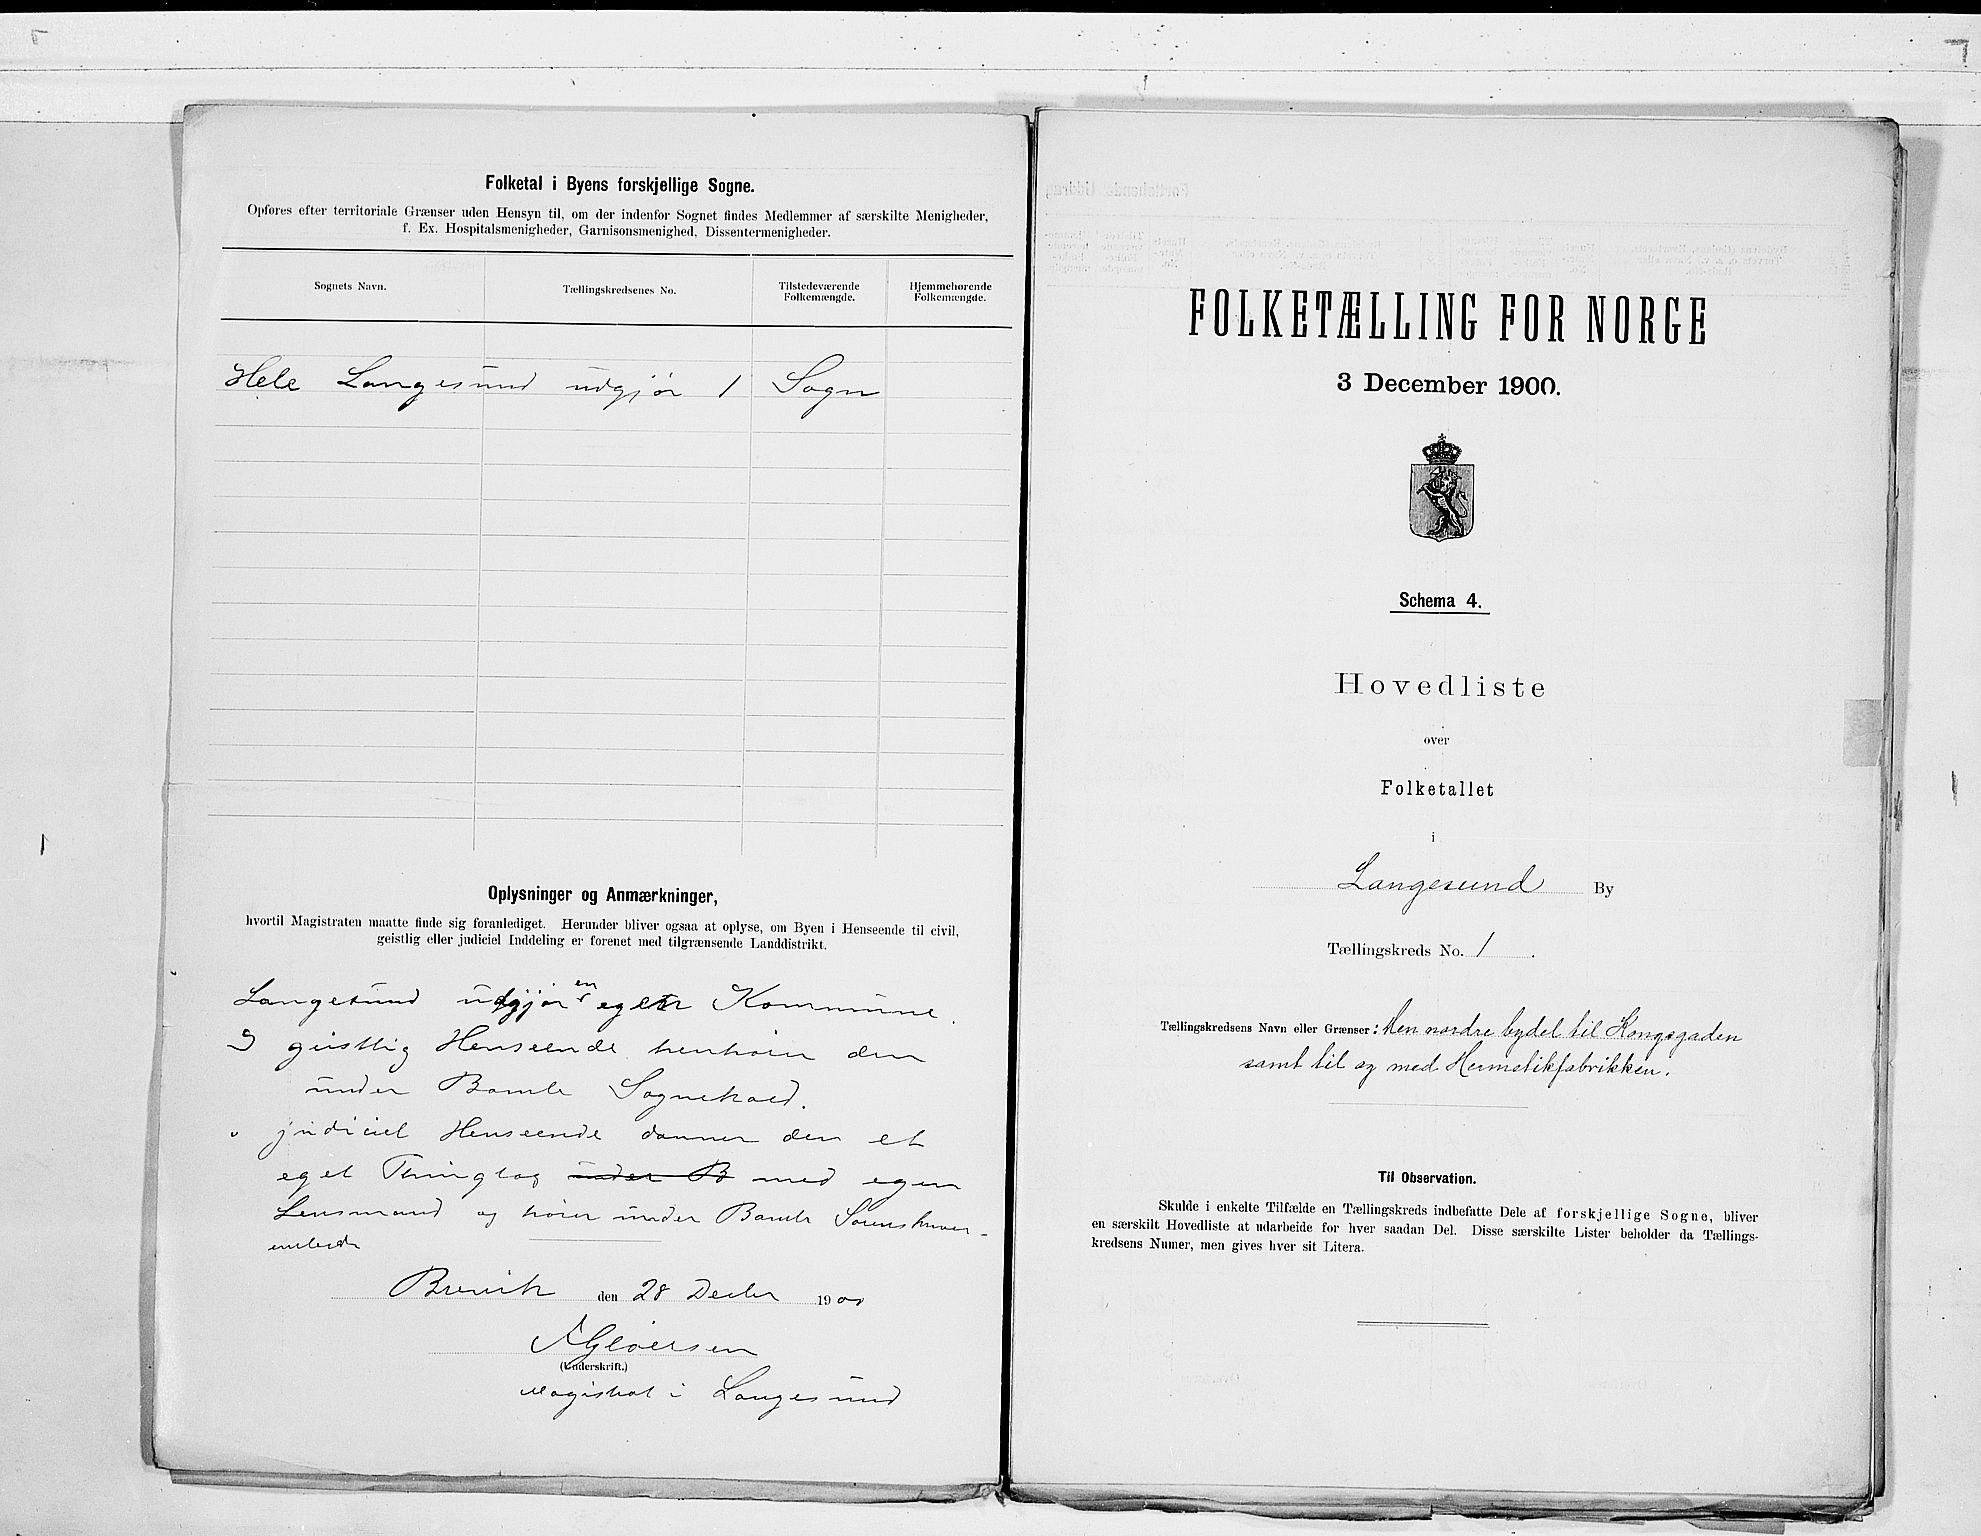 Folketal i Byens forskjellige Sogne.
Opføres efter territoriale Grænser uden Hensyn til, om der indenfor Sognet findes Medlemmer af særskilte Menigheder,
f. Ex. Hospitalsmenigheder, Garnisonsmenighed, Dissentermenigheder.
Sognets Navn.
Tællingskredsenes No.
Tilstedeværende
Folkemængde.
Hjemmehørende
Folkemængde.
Hele Langesund udgjør 1 Sogn
Oplysninger og Anmærkninger,
hvortil Magistraten maatte finde sig foranlediget. Herunder bliver ogsaa at oplyse, om Byen i Henseende til civil,
geistlig eller judiciel Inddeling er forenet med tilgrænsende Landdistrikt.
Langesund udgjør en egen Kommune.
I geistlig Henseende henhører den
under Bamle Sognekald.
judiciel Henseende danner den et
eget Thinglag under B med egen
Lensmand og hører under Bamle Sorenskriver-
embede
Brevik den 28 Decbr 1900
AGløersen
(Underskrift.)
Magistrat i Langesund
FOLKETÆLLING FOR NORGE
3 December 1900.
Schema 4.
Hovedliste
over
Folketallet
i
Langesund By
Tællingskreds No. 1.
Tællingskredsens Navn eller Grænser: Den nordre bydel til Kongsgaden
samt til og med Hermetikfabrikken.
Til Observation.
Skulde i enkelte Tilfælde en Tællingskreds indbefatte Dele af forskjellige Sogne, bliver
en særskilt Hovedliste at udarbeide for hver saadan Del. Disse særskilte Lister beholder da Tællings-
kredsens Numer, men gives hver sit Litera.